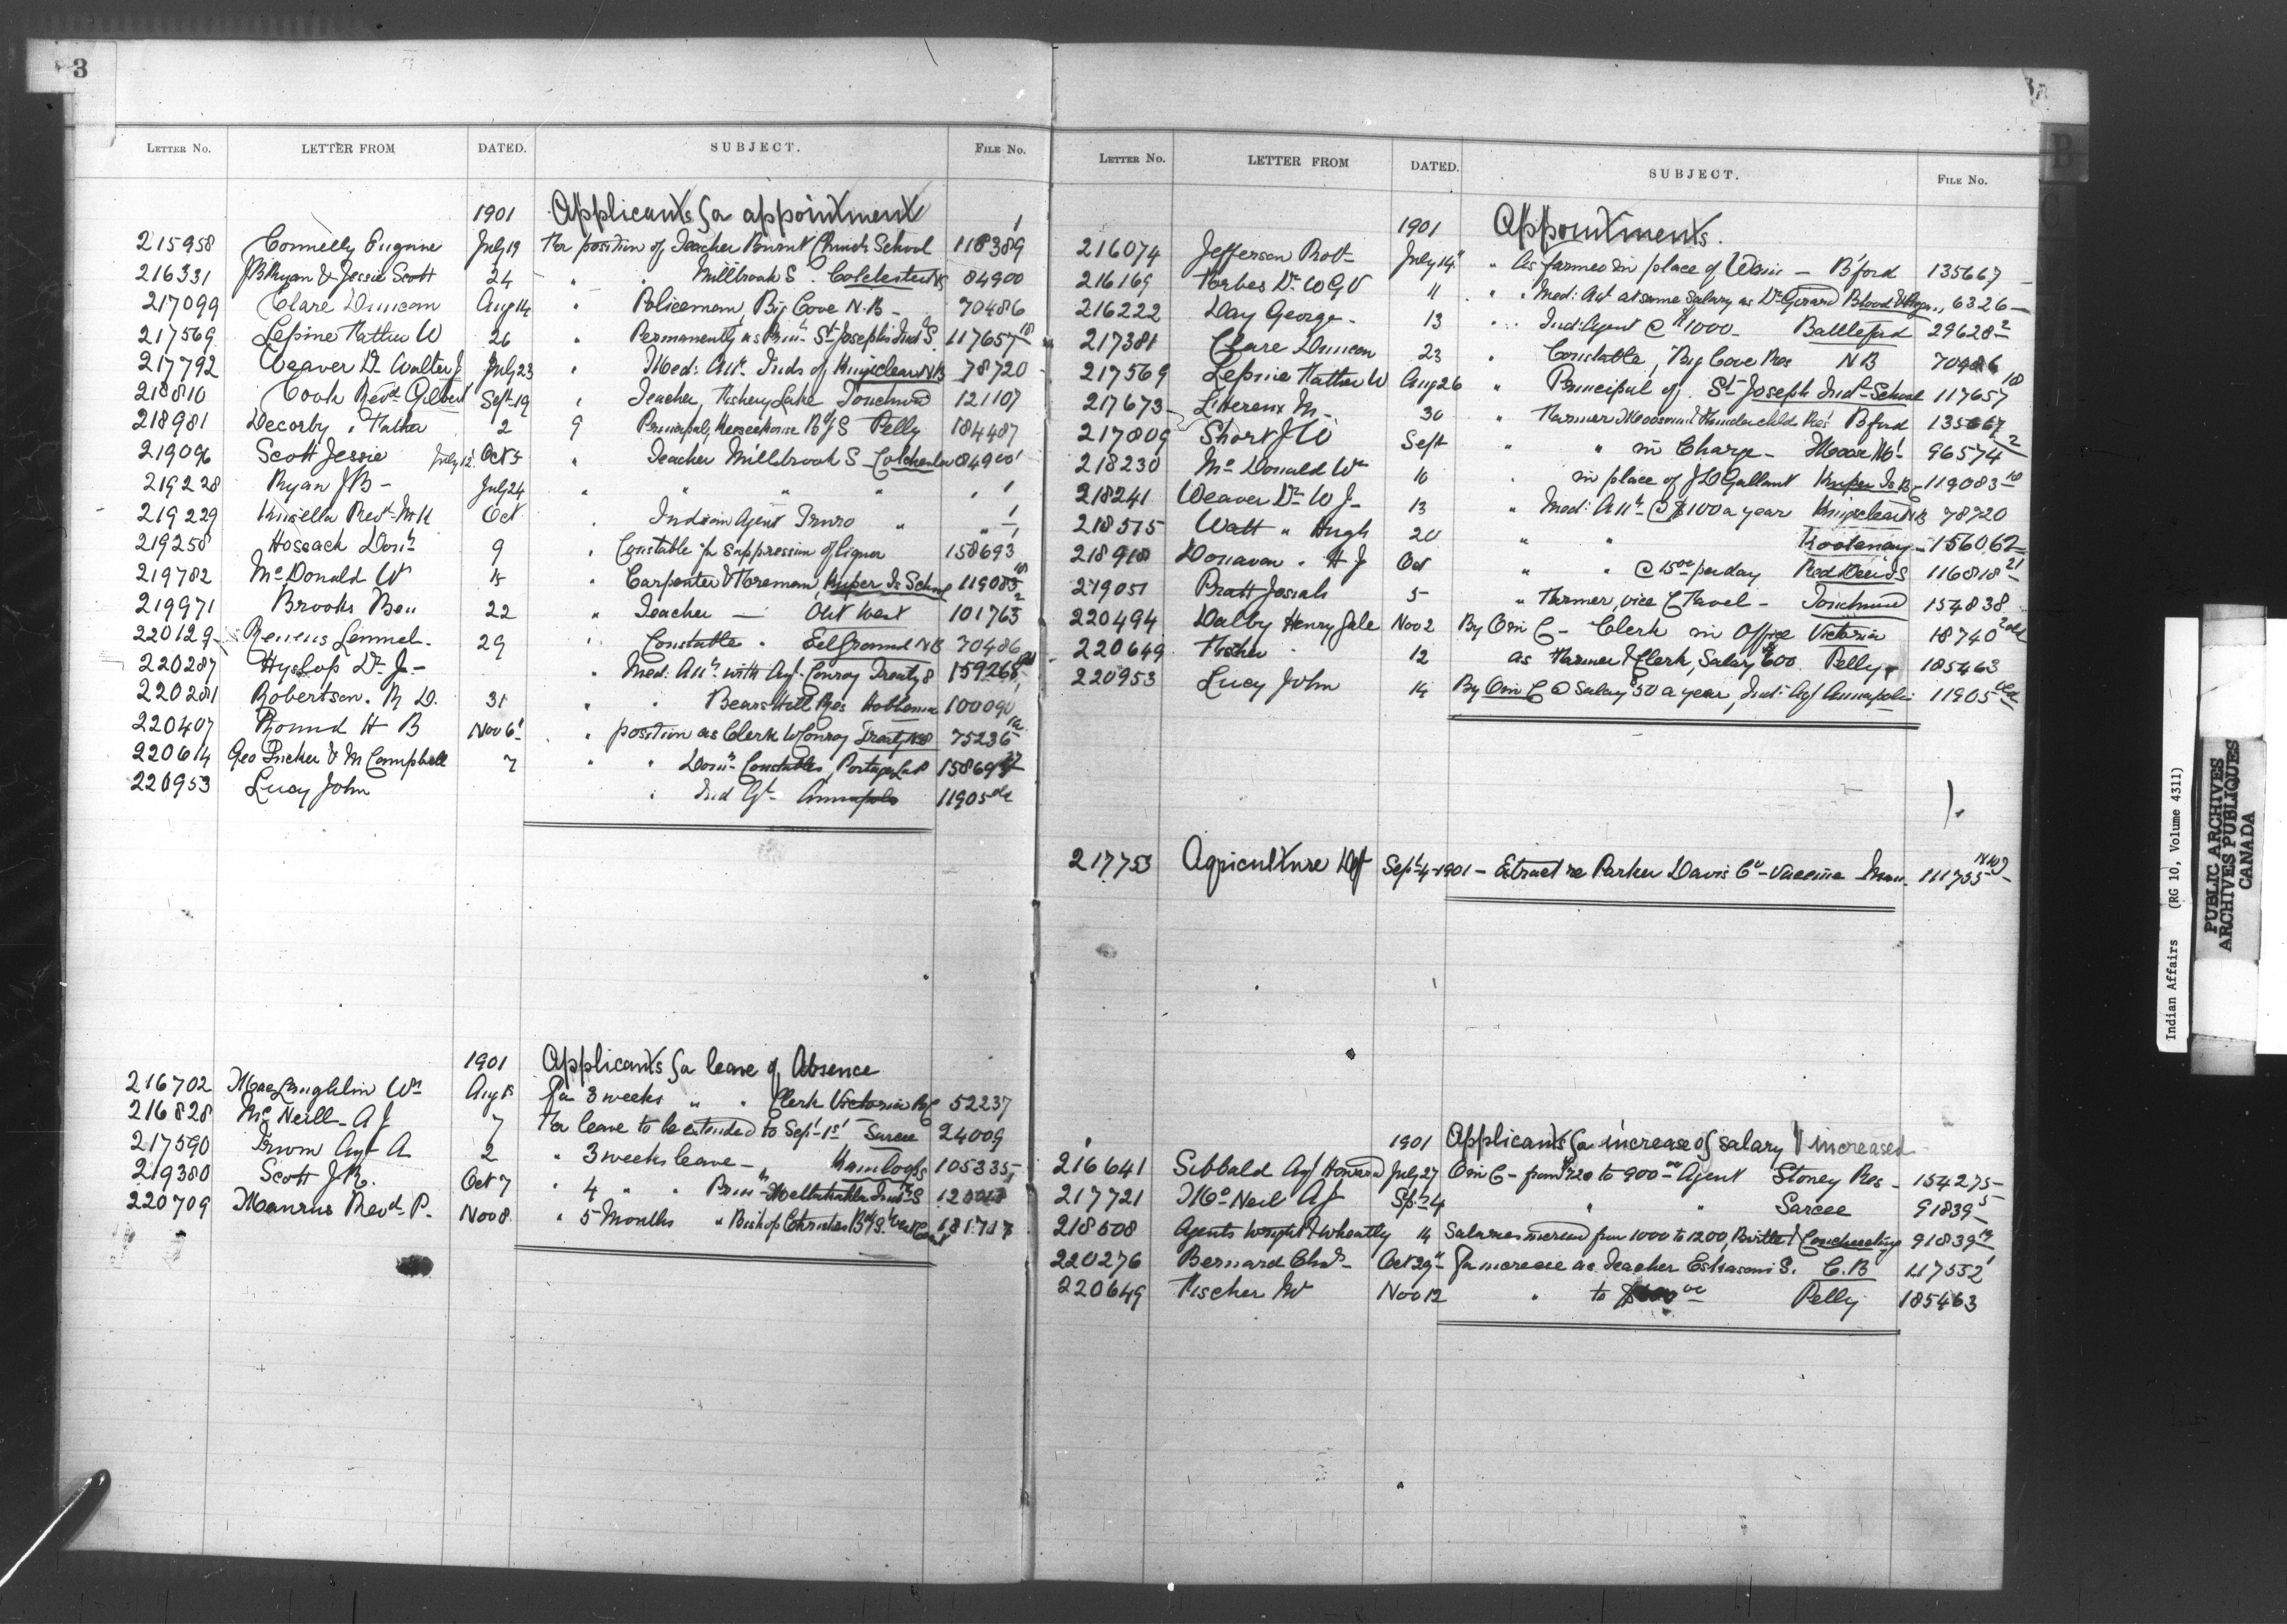 3
LETTER NO. LETTER FROM DATED. SUBJECT. FILE No.
1901 Applicants for appointment
215958 Connelly Eugene July 19 For position of Teacher Burnt Church School 118389
216331 J B Ryan & Jessie Scott 24 " " Millbrook S. Colchester NS 84900
217099 Clare Duncan Aug 14 " Policeman, Big Cove N.B - 70486
217569 Lepine Father W 26 " Permanently as Prin. St Josephs Ind S. 117657
217792 Weaver Dr Walter J July 23 " Med: Att. Inds of Kingsclear NB 78720
218810 Cook Revd Gilbert Sept 19 " Teacher, Fishery Lake Touchwood 121107
218981 Decorby Father 2 9 Principal, Keeseekouse Bdg S Pelly 184487
219096 Scott Jessie July 12 Oct 5 " Teacher Millbrook S - Colchester 84900
219228 Ryan J B - July 24 " " " " "
219229 Kinsella Revd Oct " Indian Agent Truro " "
219258 Hossack Don 9 " Constable for suppression of liquor 158693
219782 McDonald W 15 " Carpenter & Foreman, Kuper Is School 119083
219971 Brooks Ben 22 " Teacher - Out West 101763
220129 Renens Lemuel 29 " Constable. Eel Ground NB 70486
220287 Hyslop Dr J - " Med: Att. with Agt. Conroy Treaty 8 159268
220281 Robertson. R D. 31 " " Bears Hill Res Hobbema 100090
220407 Round H B Nov 6 " position as Clerk W Conroy Treaty No 8 75236
220614 Geo Tucker & M Campbell 7 " " Domn Constables, Portage La P 158693
220953 Lucy John " Ind Agt - Annapolis 11905
1901 Applicants for leave of Absence
216702 MacLaughlin Wm Aug 15 For 3 weeks " " Clerk Victoria BC 52237
216828 McNeill - A J 7 For leave to be extended to Sept 1st Sarcee 24009
217590 Irwin Agt A 2 " 3 weeks leave - Kamloops 105335
219380 Scott J R. Oct 7 " 4 " " Prin Metlakatla Ind S
220709 Revd. P. Nov 8 " 5 Months " Bishop Christies Bdg S. West Coast
LETTER NO. LETTER FROM DATED. SUBJECT. FILE No.
1901 Appointments.
216074 Jefferson Robt - July 14 " As farmer in place of - B'ford 135667 -
216169 Forbes Dr W G V 11 " " Med: Att at same salary as Dr Girard Blood 6326 -
216222 Day George - 13 " " Ind: Agent @ $1000 - Battleford 29628 2
217381 Clare Duncan 23 " Constable, Big Cove Res NB 70486
217569 Lepine Father W Aug 26 " Principal of St Joseph Ind. School 117657 18
217673 L'Hereux M - 30 " Farmer, Moosomin & Thunderchild Res. B'ford 135667
217809 Short J W Sept " " in Charge - Moose Mt. 96574 2
218230 McDonald Wm 16 in place of J D Gallant Kuper Is BC 119083 10
218241 Weaver Dr W J - 13 " Med: Att. @ $100 a year Kingsclear NB 78720
218515 Watt " Hugh 20 " " Kootenay 156062
218918 Donavan " H J Oct " " @ 15 00 per day Red Deer I S 116818 21
219051 Pratt Josiah 5 - " Farmer, vice C Favel - Touchwood 154838
220494 Dalby Henry Gale Nov 2 By O in C - Clerk in Office Victoria 18740
220649 Fischer 12 as Farmer & Clerk, Salary 600 Pelly 185463
220953 Lucy John 14 By O in C @ Salary 50 a year, Ind: Agt Annapolis 11905
217753 Agriculture Dept Sept 4 - 1901 - Extract re Parker Davis Co - Vaccine 111755
1901 Applicants for increase of salary & increased
216641 Sibbald Agt Howard July 27 O in C - from 720 to 900 00 Agent Stoney Res - 154275 -
217721 McNeil A J Sept 4 " " Sarcee 91839 5
218508 Agents Wright & Wheatly 14 Salaries increased from 1000 to 1200, Birtle & Couchiching 91839
220276 Bernard Chas - Oct 29 For increase as Teacher Eskasoni S. C.B 117552
220649 Fischer Nov 12 " to Pelly 185463
Indian Affairs (RG 10, Volume 4311)
PUBLIC ARCHIVES
ARCHIVES PUBLIQUES
CANADA